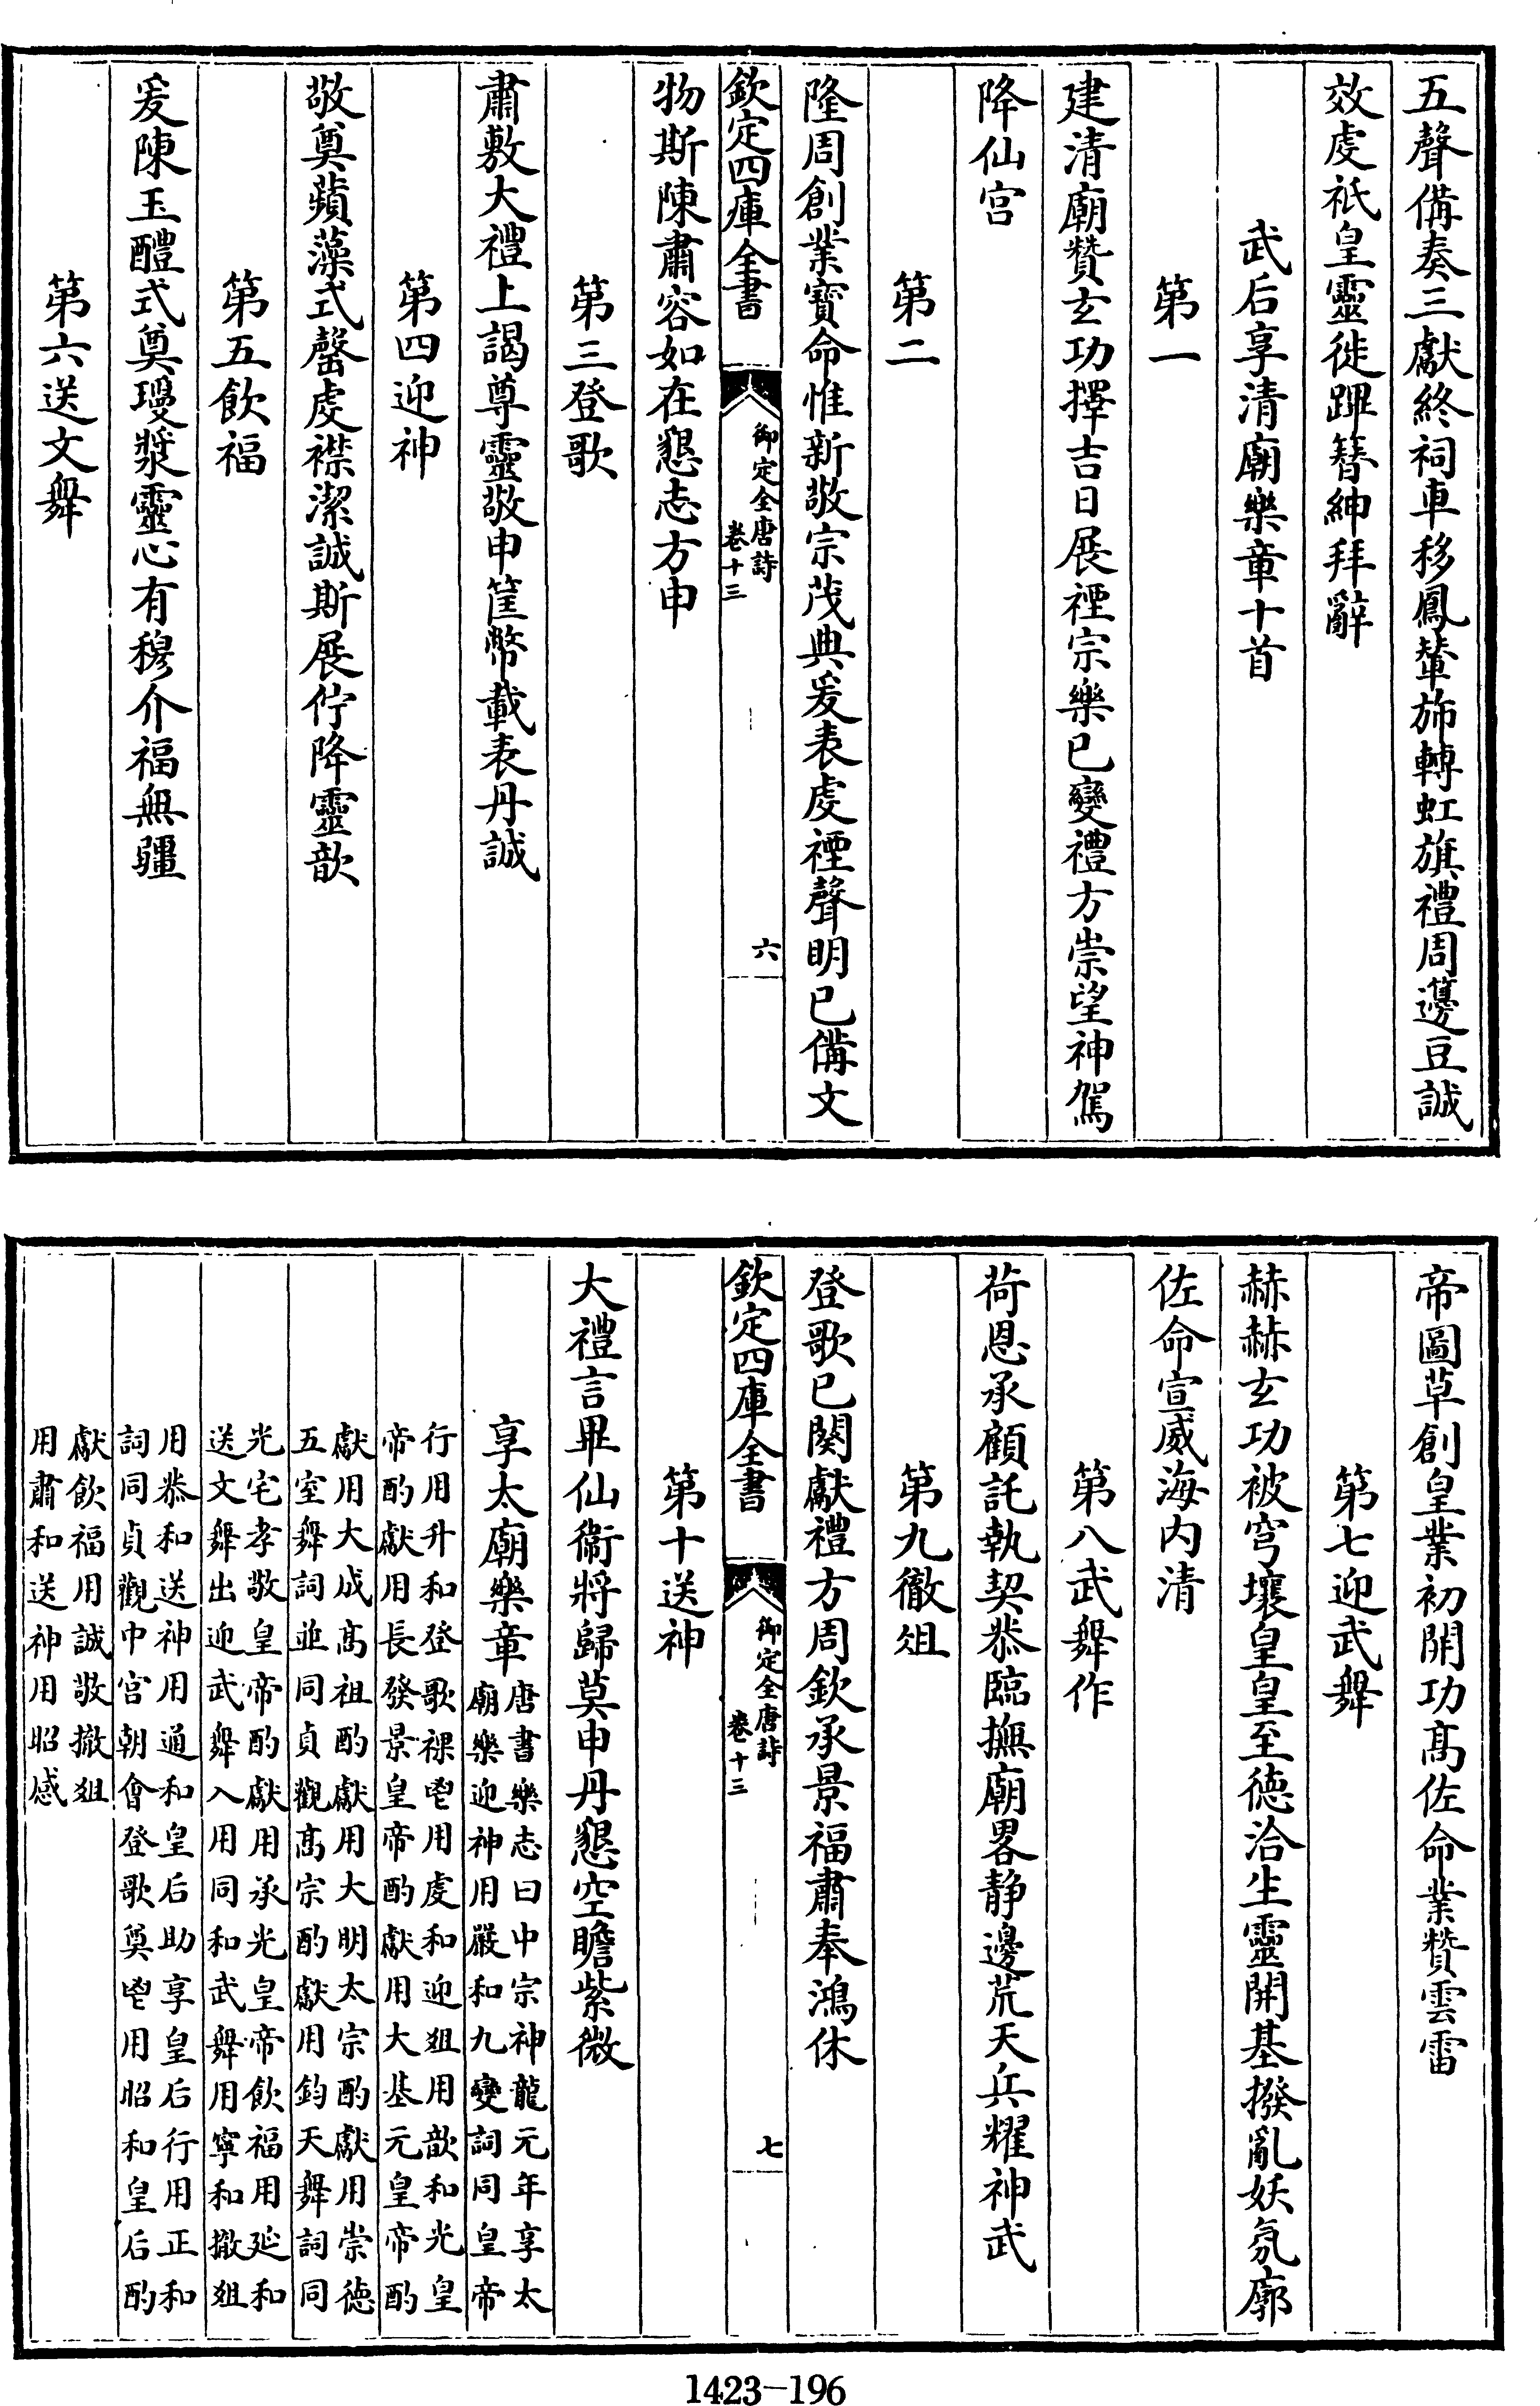 五聲備奏三獻終祠車移鳳輦斾轉虹旗禮周籩豆誠
效虔祇皇靈徙蹕簪紳拜辭
武后享清廟樂章十首
第一
建清廟贊玄功擇吉日展禋宗樂已變禮方崇望神駕
降仙宫
第二
隆周創業寶命惟新敬宗茂典爰表虔禋聲明已備文
欽定四庫全書
御定全唐詩
卷十三
六
物斯陳肅容如在懇志方申
第三登歌
肅敷大禮上謁尊靈敬申筐幣載表丹誠
第四迎神
敬奠蘋藻式罄虔襟潔誠斯展佇降靈歆
第五飲福
爰陳玉醴式奠瓊漿靈心有穆介福無疆
第六送文舞
帝圖草創皇業初開功髙佐命業贊雲雷
第七迎武舞
赫赫玄功被穹壤皇皇至徳洽生靈開基撥亂妖氛廓
佐命宣威海内清
第八武舞作
荷恩承顧託執契恭臨撫廟畧静邊荒天兵耀神武
第九徹俎
登歌已闋獻禮方周欽承景福肅奉鴻休
欽定四庫全書
御定全唐詩
卷十三
七
第十送神
大禮言畢仙衞將歸莫申丹懇空瞻紫微
享太廟樂章
唐書樂志曰中宗神龍元年享太
廟樂迎神用嚴和九變詞同皇帝
行用升和登歌祼鬯用虔和迎俎用歆和光皇
帝酌獻用長發景皇帝酌獻用大基元皇帝酌
獻用大成髙祖酌獻用大明太宗酌獻用崇徳
五室舞詞並同貞觀髙宗酌獻用鈞天舞詞同
光宅孝敬皇帝酌獻用承光皇帝飲福用延和
送文舞出迎武舞入用同和武舞用寧和撤俎
用恭和送神用通和皇后助享皇后行用正和
詞同貞觀中宫朝會登歌奠鬯用昭和皇后酌
獻飲福用誠敬撤俎
用肅和送神用昭感
1423-196